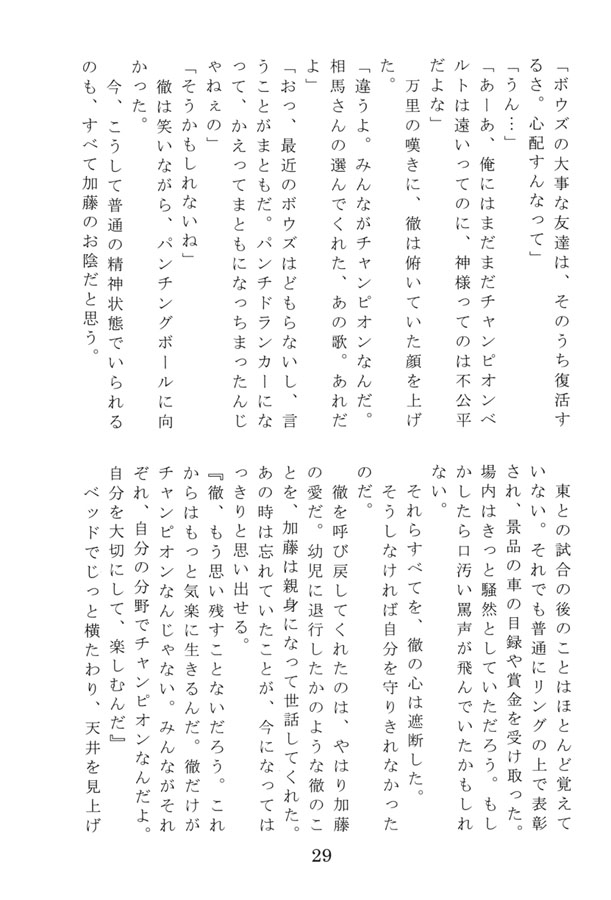 「ボウズの大事な友達は、そのうち復活す
るさ。心配すんなって」
「うん…」
「あーあ、俺にはまだまだチャンピオンベ
ルトは遠いってのに、神様ってのは不公平
だよな」
　万里の嘆きに、徹は俯いていた顔を上げ
た。
「違うよ。みんながチャンピオンなんだ。
相馬さんの選んでくれた、あの歌。あれだ
よ」
「おっ、最近のボウズはどもらないし、言
うことがまともだ。パンチドランカーにな
って、かえってまともになっちまったんじ
ゃねぇの」
「そうかもしれないね」
　徹は笑いながら、パンチングボールに向
かった。
　今、こうして普通の精神状態でいられる
のも、すべて加藤のお陰だと思う。
　東との試合の後のことはほとんど覚えて
いない。それでも普通にリングの上で表彰
され、景品の車の目録や賞金を受け取った。
場内はきっと騒然としていただろう。もし
かしたら口汚い罵声が飛んでいたかもしれ
ない。
　それらすべてを、徹の心は遮断した。
　そうしなければ自分を守りきれなかった
のだ。
　徹を呼び戻してくれたのは、やはり加藤
の愛だ。幼児に退行したかのような徹のこ
とを、加藤は親身になって世話してくれた。
あの時は忘れていたことが、今になっては
っきりと思い出せる。
『徹、もう思い残すことないだろう。これ
からはもっと気楽に生きるんだ。徹だけが
チャンピオンなんじゃない。みんながそれ
ぞれ、自分の分野でチャンピオンなんだよ。
自分を大切にして、楽しむんだ』
　ベッドでじっと横たわり、天井を見上げ
29